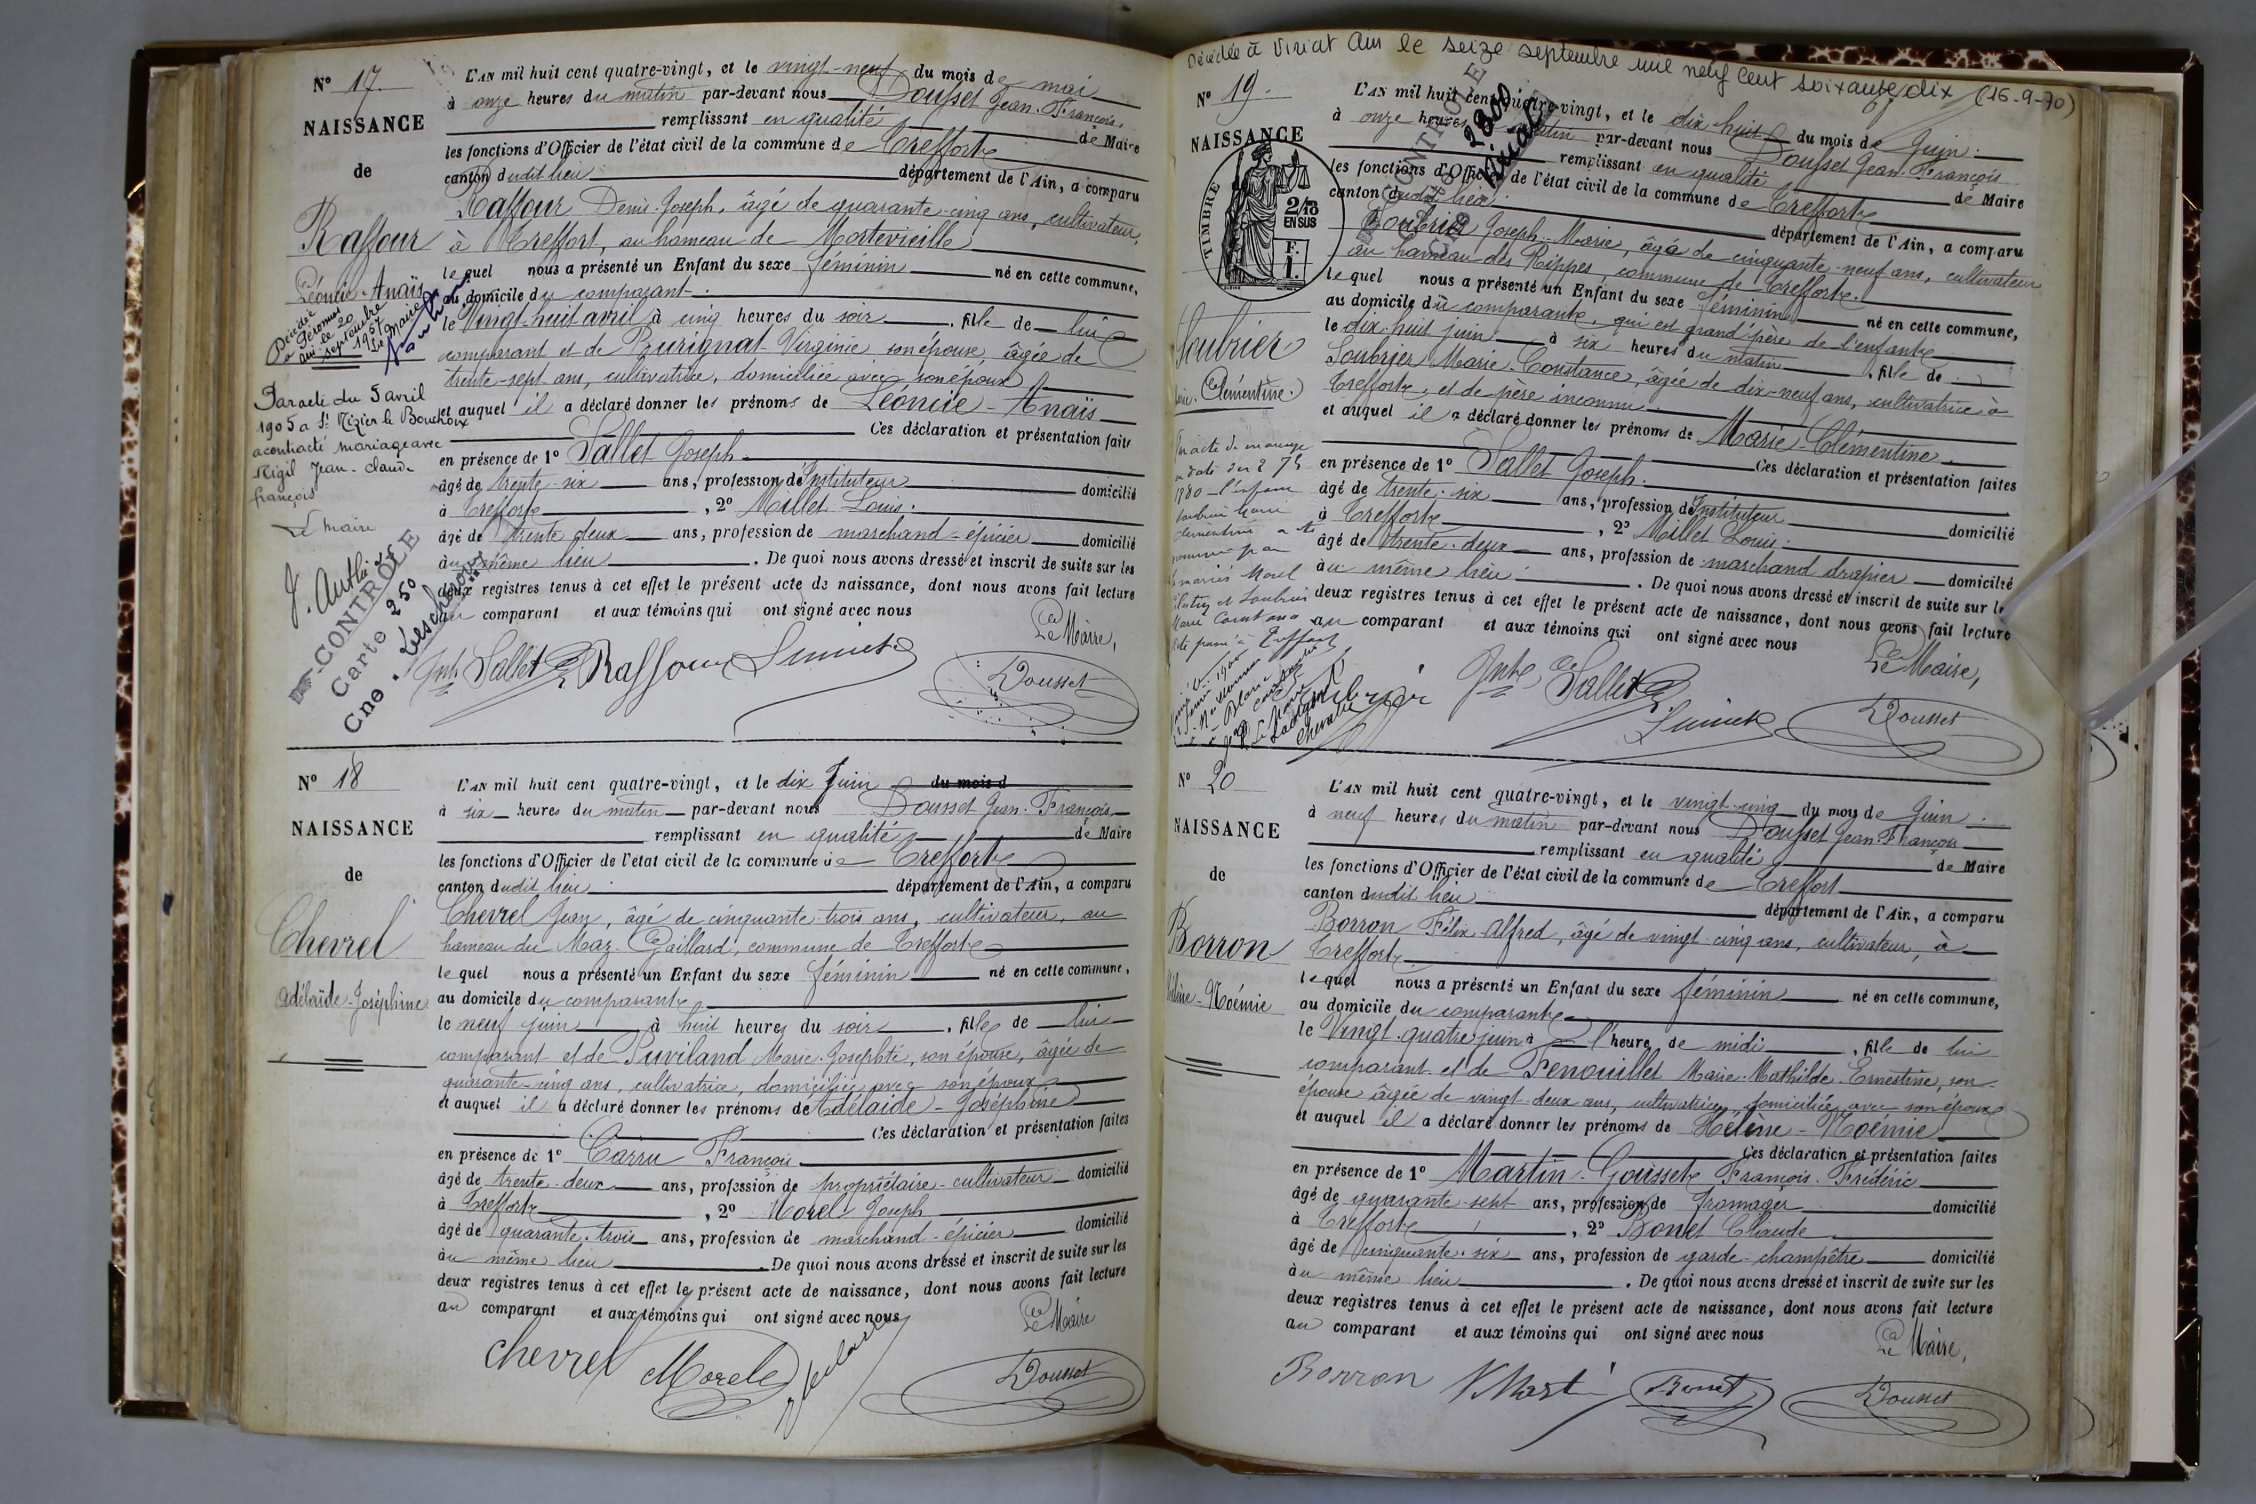 N° 17.
NAISSANCE
de
Raffour
Léoncie-Anaïs
Décédée
à Péronnas
Ain le 20
septembre
1957
Le Maire
Par acte du 5 avril
1905 a St Nizier le Bouchoux
a contracté mariage avec
Nigil Jean-Claude
françois
Le Maire
J. Authier
DÉ-CONTRÔLE
Carte 250
Cne. Lescheroux
L'AN mil huit cent quatre-vingt, et le vingt-neuf du mois de mai
à onze heures du matin par-devant nous Dousset Jean-François,
remplissant en qualité de Maire
les fonctions d'Officier de l'état civil de la commune de Treffort
canton dudit lieu département de l'Ain, a comparu
Raffour Denis-Joseph, âgé de quarante-cinq ans, cultivateur,
à Treffort, au hameau de Mortevieille
lequel nous a présenté un Enfant du sexe féminin né en cette commune,
au domicile du comparant.
le Vingt-huit avril à cinq heures du soir, fille de lui
comparant et de Purignat Virginie son épouse, âgée de
trente-sept ans, cultivatrice, domiciliée avec son époux
et auquel il a déclaré donner les prénoms de Léoncie-Anaïs
Ces déclaration et présentation faites
en présence de 1° Sallet Joseph
âgé de trente-six ans, profession d'Instituteur domicilié
à Treffort, 2° Millet Louis.
âgé de trente deux ans, profession de marchand-épicier domicilié
au même lieu. De quoi nous avons dressé et inscrit de suite sur les
deux registres tenus à cet effet le présent acte de naissance, dont nous avons fait lecture
au comparant et aux témoins qui ont signé avec nous
Le Maire,
Sallet Raffour Dousset
N° 18
NAISSANCE
de
Chevrel
Adélaïde-Joséphine
L'AN mil huit cent quatre-vingt, et le dix Juin du mois d
à six heures du matin par-devant nous Dousset Jean-François
remplissant en qualité de Maire
les fonctions d'Officier de l'état civil de la commune de Treffort
canton dudit lieu département de l'Ain, a comparu
Chevrel Jean, âgé de cinquante-trois ans, cultivateur, au
hameau du Maz-Gaillard, commune de Treffort
lequel nous a présenté un Enfant du sexe féminin né en cette commune,
au domicile du comparant
le neuf juin à huit heures du soir, fille de lui
comparant et de Puviland Marie-Josephte, son épouse, âgée de
quarante-cinq ans, cultivatrice, domiciliée avec son époux
et auquel il a déclaré donner les prénoms de Adélaïde-Joséphine
Ces déclaration et présentation faites
en présence de 1° Carru François
âgé de trente-deux ans, profession de propriétaire-cultivateur domicilié
à Treffort, 2° Morel Joseph
âgé de quarante-trois ans, profession de marchand-épicier domicilié
au même lieu. De quoi nous avons dressé et inscrit de suite sur les
deux registres tenus à cet effet le présent acte de naissance, dont nous avons fait lecture
au comparant et aux témoins qui ont signé avec nous
Le Maire
chevrel Morel Dousset
Décédée à Viriat Ain le seize septembre mil neuf cent soixante dix (16-9-70)
N° 19.
NAISSANCE
TIMBRE
2/10
EN SUS
F.
1.
Soubrier
Marie-Clémentine.
DÉ-CONTRÔLE
2800
Viriat
L'AN mil huit cent quatre-vingt, et le dix huit du mois de Juin.
à onze heures du matin par-devant nous Dousset Jean-François
remplissant en qualité de Maire
les fonctions d'Officier de l'état civil de la commune de Treffort
canton dudit lieu. département de l'Ain, a comparu
Soubrier Joseph-Marie, âgé de cinquante-neuf ans, cultivateur
au hameau des Rippes, commune de Treffort.
lequel nous a présenté un Enfant du sexe féminin né en cette commune,
au domicile du comparant, qui est grand'père de l'enfant
le dix-huit juin à six heures du matin, fille de
Soubrier Marie-Constance, âgée de dix-neuf ans, cultivatrice à
Treffort, et de père inconnu
et auquel il a déclaré donner les prénoms de Marie-Clémentine.
Ces déclaration et présentation faites
en présence de 1° Sallet Joseph.
âgé de trente-six ans, profession d'Instituteur domicilié
à Treffort, 2° Millet Louis.
âgé de trente-deux ans, profession de marchand drapier domicilié
au même lieu. De quoi nous avons dressé et inscrit de suite sur les
deux registres tenus à cet effet le présent acte de naissance, dont nous avons fait lecture
au comparant et aux témoins qui ont signé avec nous
Le Maire,
Soubrier Sallet Dousset
N° 20
NAISSANCE
de
Borron
Hélène-Noémie
L'AN mil huit cent quatre-vingt, et le vingt-cinq du mois de Juin.
à neuf heures du matin par-devant nous Dousset Jean-François
remplissant en qualité de Maire
les fonctions d'Officier de l'état civil de la commune de Treffort
canton dudit lieu département de l'Ain, a comparu
Borron Félix-Alfred, âgé de vingt-cinq ans, cultivateur, à
Treffort
lequel nous a présenté un Enfant du sexe féminin né en cette commune,
au domicile du comparant
le Vingt-quatre juin à l'heure de midi, fille de lui
comparant et de Fenouillet Marie-Mathilde-Ernestine, son
épouse âgée de vingt-deux ans, cultivatrice, domiciliée avec son époux
et auquel il a déclaré donner les prénoms de Hélène-Noémie
Ces déclaration et présentation faites
en présence de 1° Martin-Gousset François-Frédéric
âgé de quarante-sept ans, profession de fromager domicilié
à Treffort, 2° Bonet Claude
âgé de cinquante-six ans, profession de garde-champêtre domicilié
au même lieu. De quoi nous avons dressé et inscrit de suite sur les
deux registres tenus à cet effet le présent acte de naissance, dont nous avons fait lecture
au comparant et aux témoins qui ont signé avec nous
Le Maire,
Borron Bonet Dousset